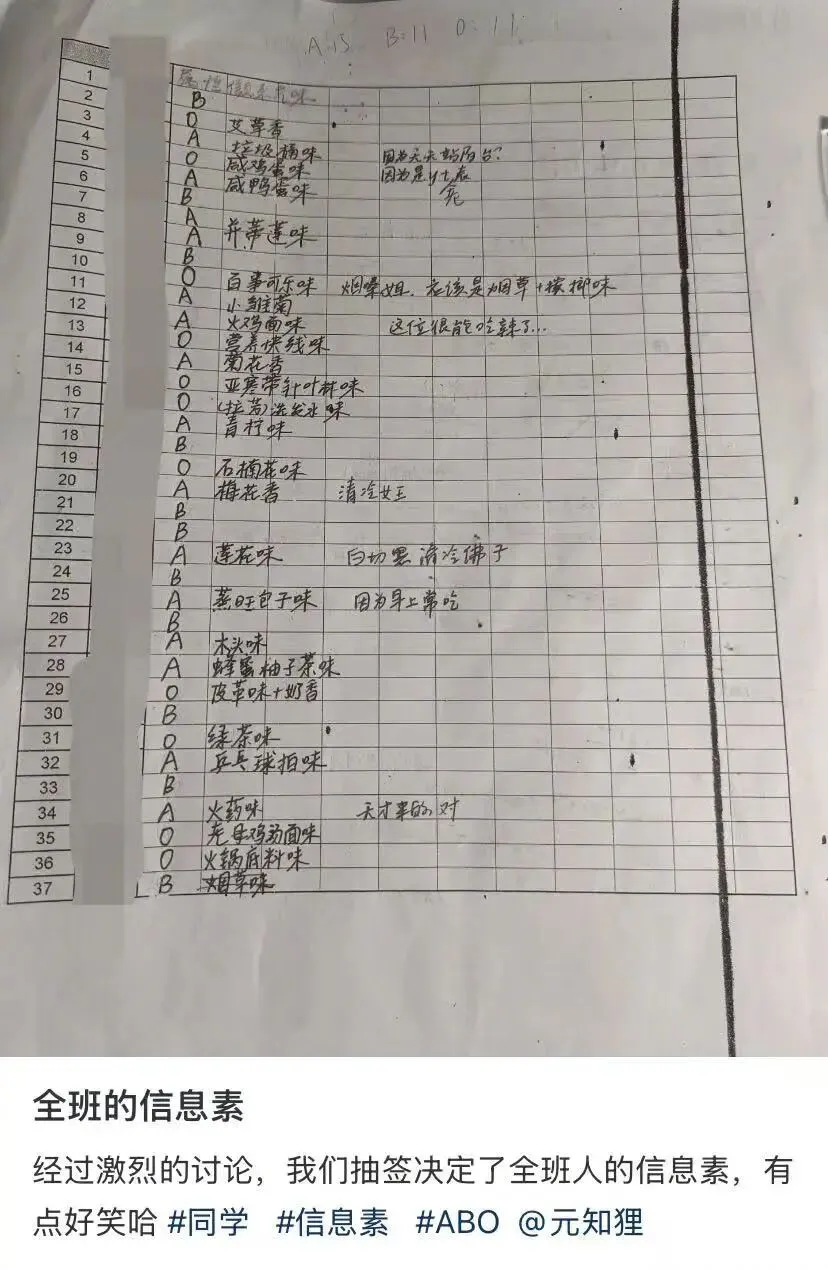 A:15 B:11 O:11
属性 信息素气味
1 B
2 O 艾草香
3 A 垃圾桶味 因为天天站阳台?
4 O 咸鸡蛋味 因为是
5 A 咸鸭蛋味
6 B
7 A
8 A 并蒂莲味
9 B
10 O 百事可乐味 烟嗓姐,应该是烟草+槟榔味
11 A 小雏菊
12 A 火鸡面味 这位很能吃辣了...
13 O 营养快线味
14 A 菊花香
15 O 亚寒带针叶林味
16 O (拉芳)洗发水味
17 A 青柠味
18 B
19 O 石楠花味
20 A 梅花香 清冷女王
21 B
22 B
23 A 莲花味 白切黑 清冷佛子
24 B
25 A 蒸旺包子味 因为早上常吃
26 B
27 A 木头味
28 A 蜂蜜柚子茶味
29 O 皮革味+奶香
30 B
31 O 绿茶味
32 A 乒乓球拍味
33 B
34 A 火药味 天才来的 对
35 O 老母鸡汤面味
36 O 火锅底料味
37 B 烟草味
全班的信息素
经过激烈的讨论，我们抽签决定了全班人的信息素，有
点好笑哈 #同学 #信息素 #ABO @元知狸